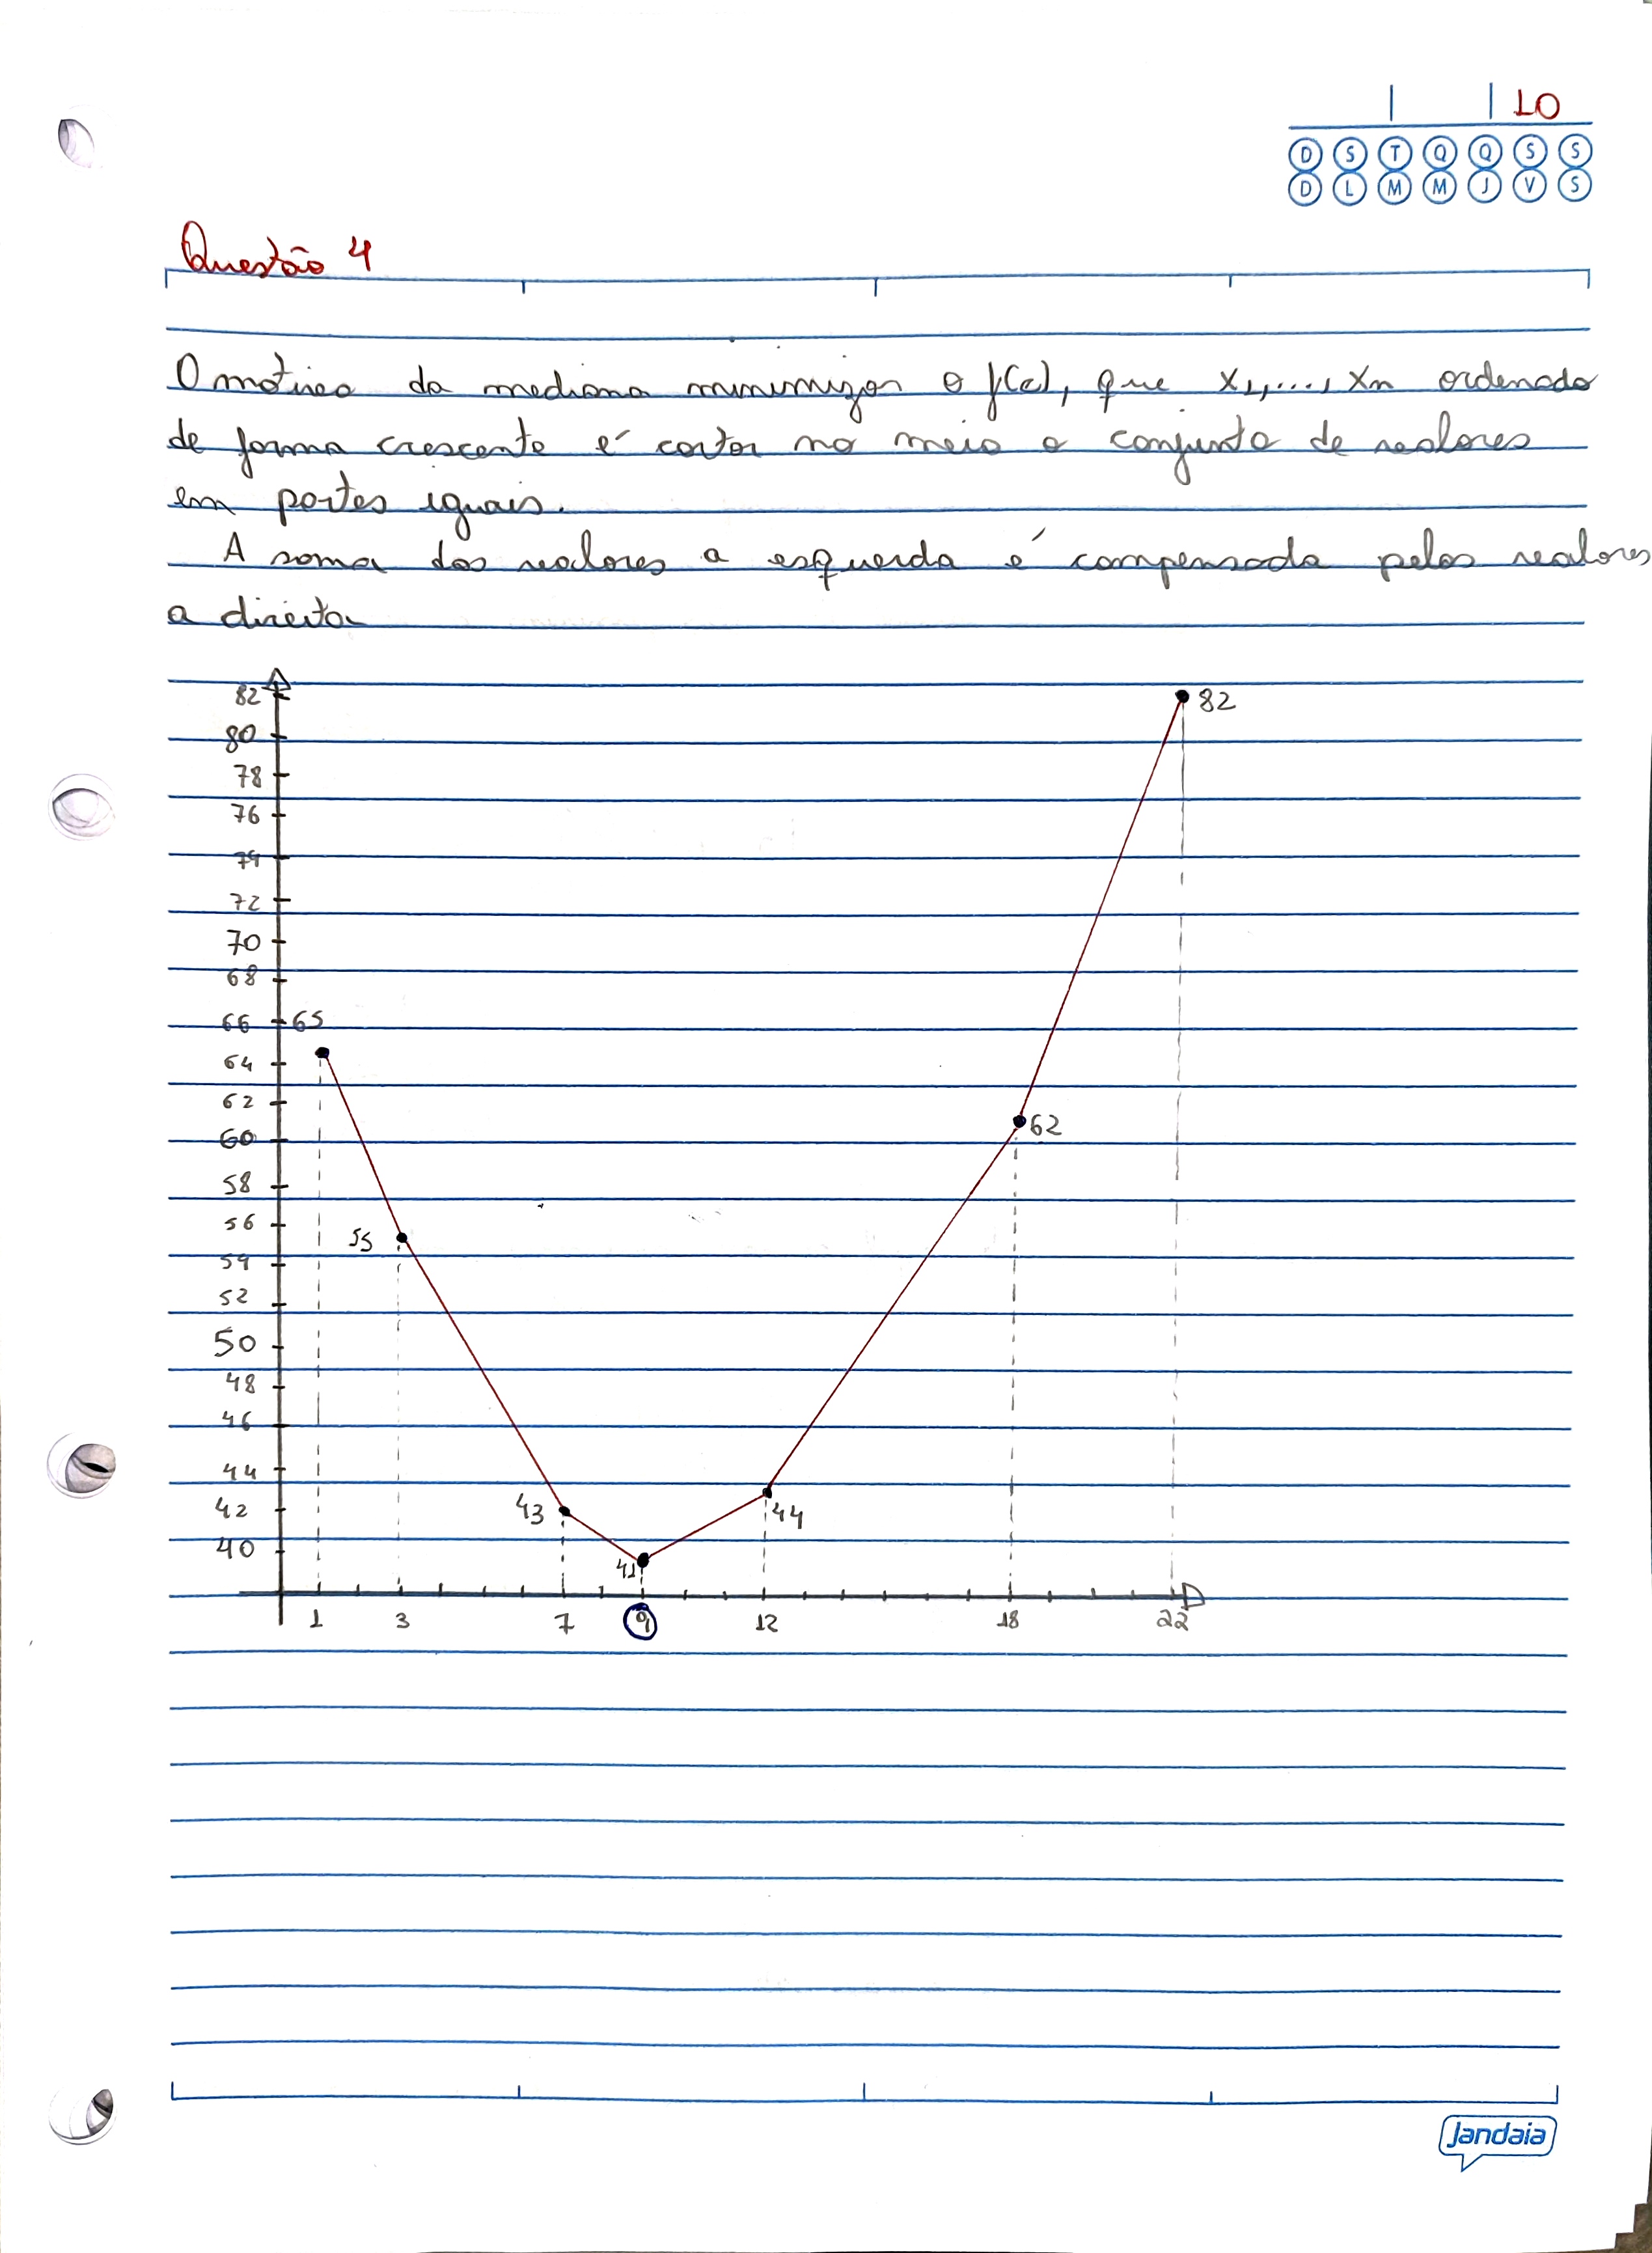 10
D S T Q Q S S
D L M M J V S
Questão 4
O motivo da mediana minimizar o f(a), que x1,...., xn ordenado
de forma crescente é cortar no meio o conjunto de valores
em partes iguais.
A soma dos valores a esquerda é compensada pelos valores
a direita
82
80
78
76
74
72
70
68
66
64
62
60
58
56
54
52
50
48
46
44
42
40
82
65
62
55
43
44
41
1 3 7 9 12 18 22
Jandaia